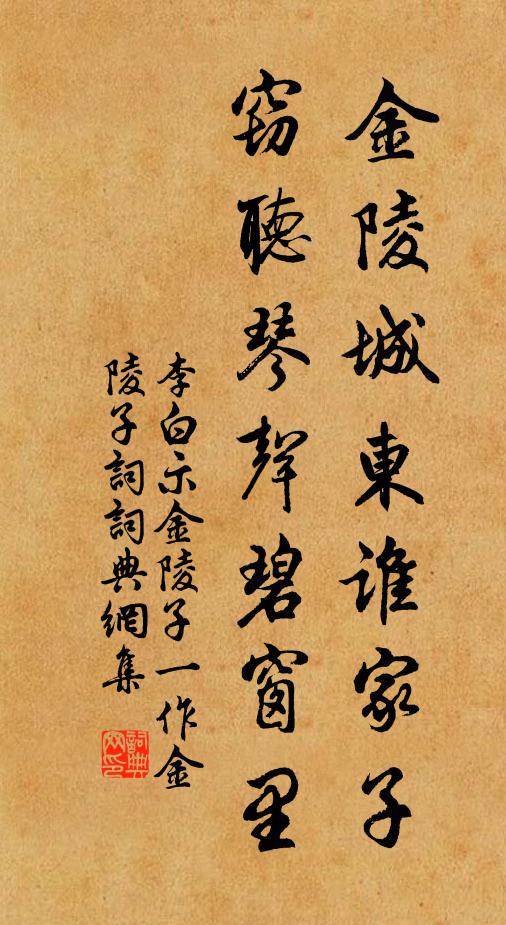 金陵城東誰家子
窈聽琴聲碧窗里
李白示金陵子一作金
陵子詞詞典網集
詞典網印